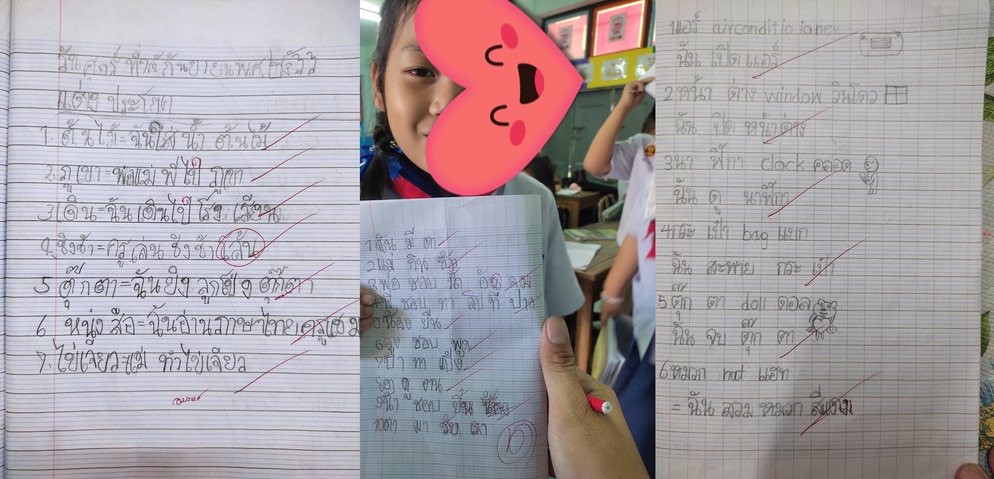 วันศุกร์ ที่
แต่ง ประโยค
1. ต้นไม้ = ฉันใส่ น้ำ ต้นไม้
2. ภูเขา = พ่อแม่ พี่ไป ภูเขา
3. เดิน = ฉันเดินไป โรง เรียน
4. ชิงช้า = ครู เล่น ชิง ช้า เล่น
5 ตุ๊ก ตา = ฉันยิง ลูกโป่ง ตุ๊กตา
6. หนัง สือ = ฉันอ่านภาษาไทย
7. ไข่เจียว = แม่ ทำไข่เจียว
1 ฉัน มี ตา
2 แม่ กิน
3 พ่อ ชอบ
ชอบ ทา ลิป ที่ ปาก
ยืน
ชอบ พูด
7 ป้า ทา แป้ง
ดู งาน
9 น้า ชอบ ยิ้ม
10 ตา มา
10
1 แอร์ airconditioioner
ฉัน เปิด แอร์
2 หน้า ต่าง window วินโดว
ฉัน ปิด หน้าต่าง
3 นา ฬิกา clock คลอด
ฉัน ดู นาฬิกา
4 กระ เป๋า bag แบก
ฉัน สะพาย กระ เป๋า
5 ตุ๊ก ตา doll ดอล
ฉัน จับ ตุ๊ก ตา
6 หมวก hat แฮท
= ฉัน สวม หมวก สีแดง